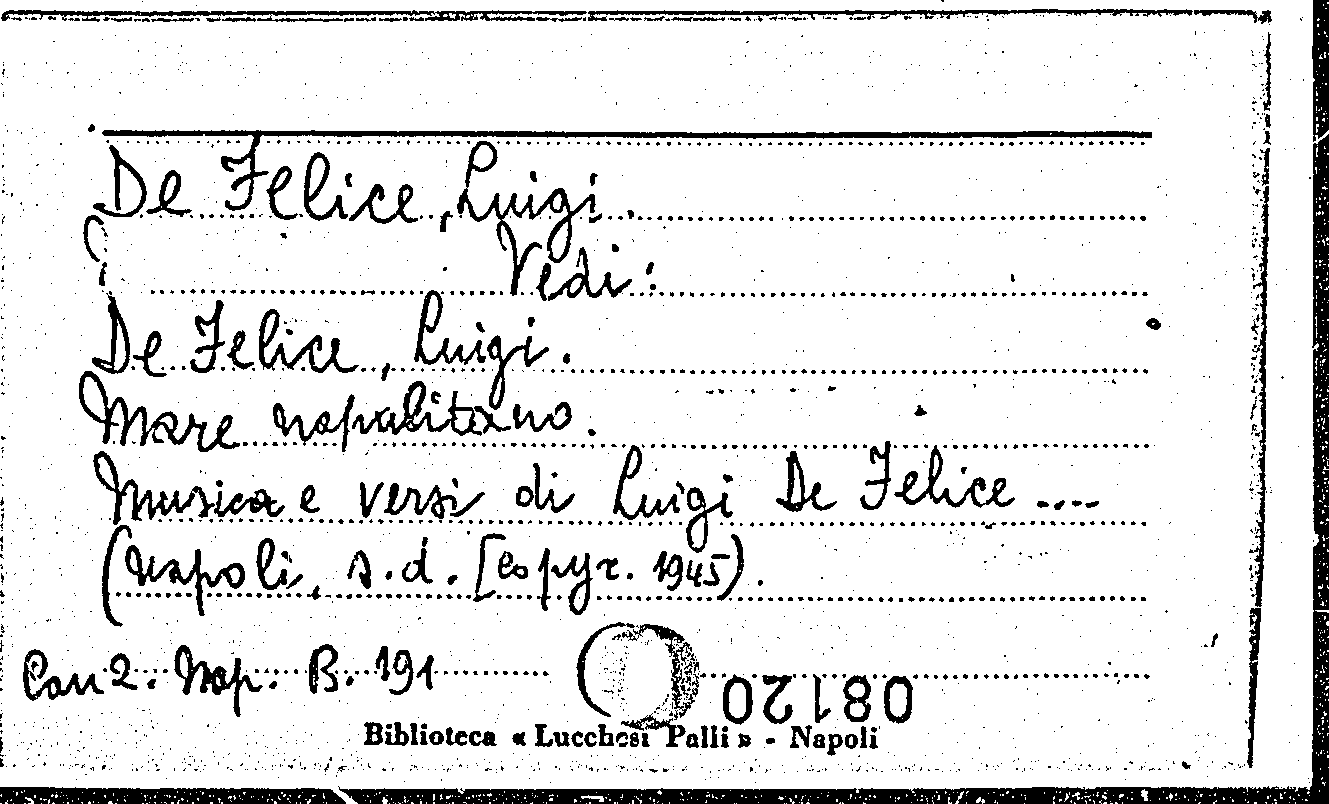 De Felice, Luigi.
Vedi:
De Felice, Luigi.
Mare napolitano.
Musica e versi di Luigi De Felice ....
(Napoli, s.d. [copyr. 1945).
Canz. Nap. B. 191
08120
Biblioteca « Lucchesi Palli » - Napoli